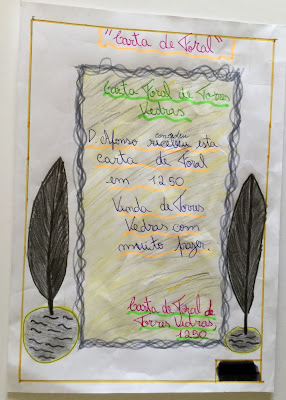 "Carta de Foral"
Carta Foral de Torres
Vedras
concedeu
D. Afonso recebeu esta
carta de Foral
em 1250
Vinda de Torres
Vedras com
muito prazer.
Carta de Foral de
Torres Vedras,
1250